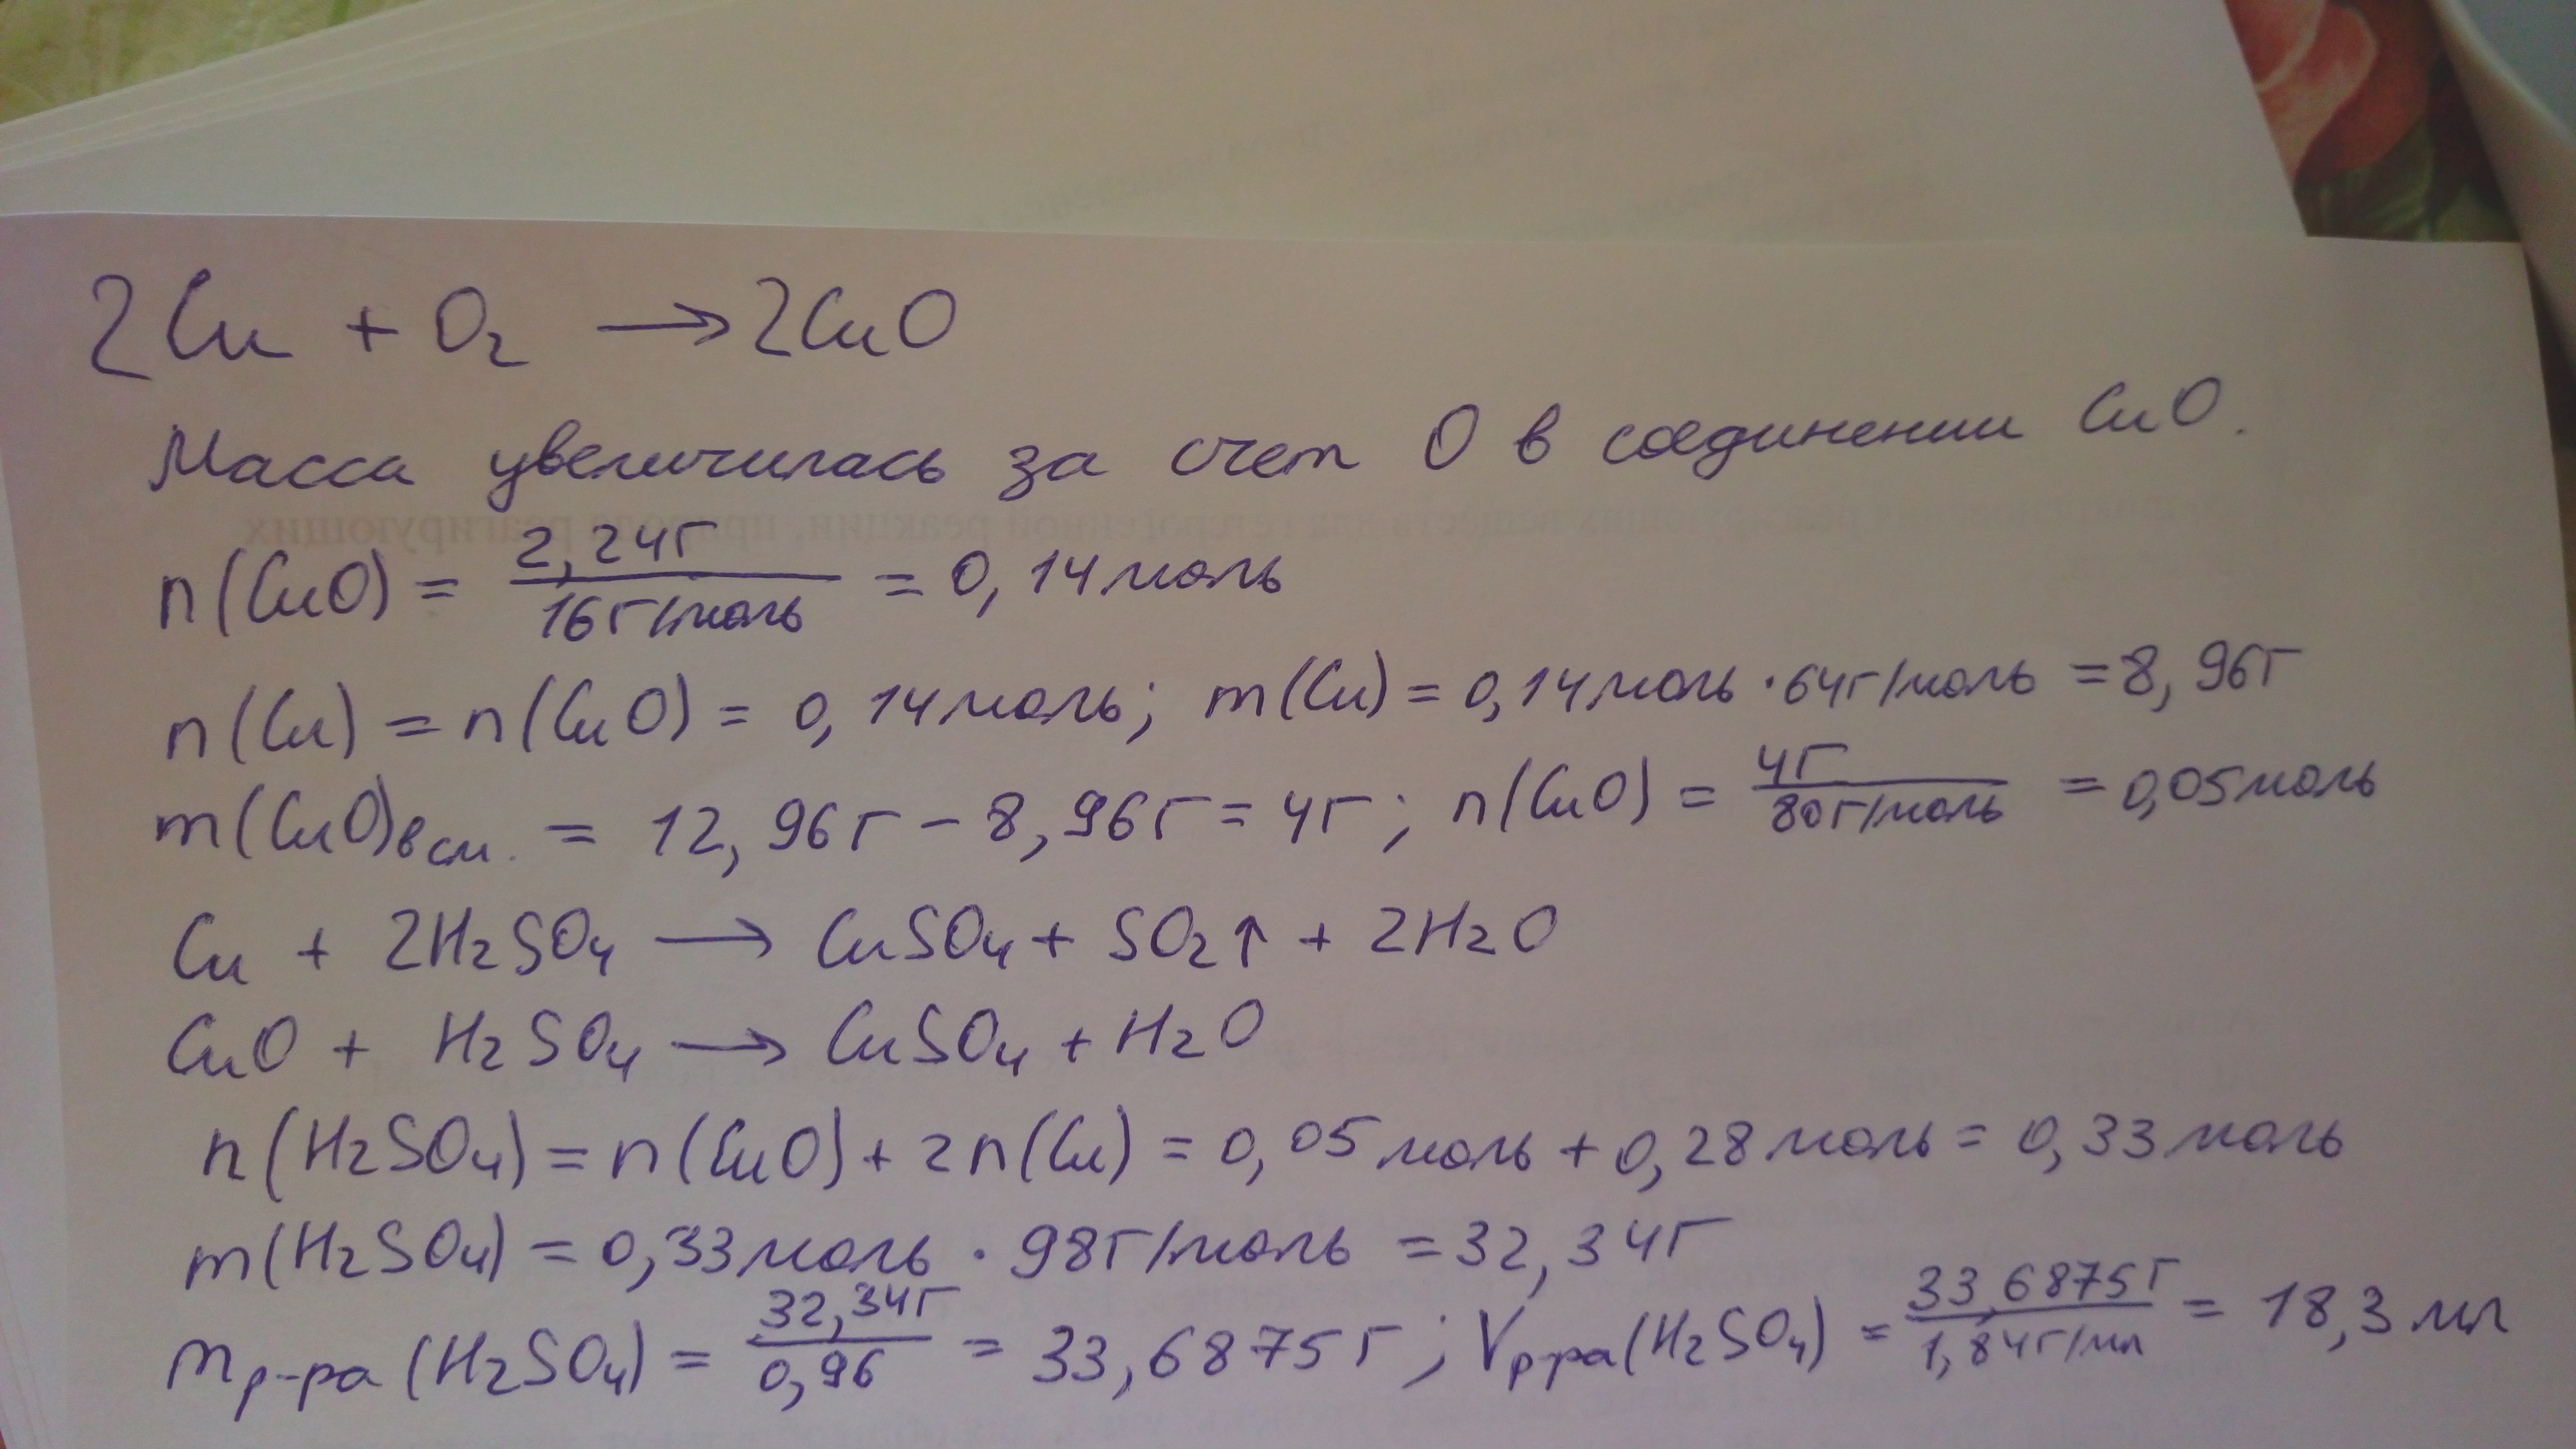 2Cu + O₂ → 2CuO
Масса увеличилась за счет O в соединении CuO.
n(CuO) = 2,24г / 16г/моль = 0,14моль
n(Cu) = n(CuO) = 0,14моль; m(Cu) = 0,14моль · 64г/моль = 8,96г
m(CuO)в см. = 12,96г – 8,96г = 4г; n(CuO) = 4г / 80г/моль = 0,05моль
Cu + 2H₂SO₄ → CuSO₄ + SO₂↑ + 2H₂O
CuO + H₂SO₄ → CuSO₄ + H₂O
n(H₂SO₄) = n(CuO) + 2n(Cu) = 0,05моль + 0,28моль = 0,33моль
m(H₂SO₄) = 0,33моль · 98г/моль = 32,34г
mр-ра(H₂SO₄) = 32,34г / 0,96 = 33,6875г; Vр-ра(H₂SO₄) = 33,6875г / 1,84г/мл = 18,3мл